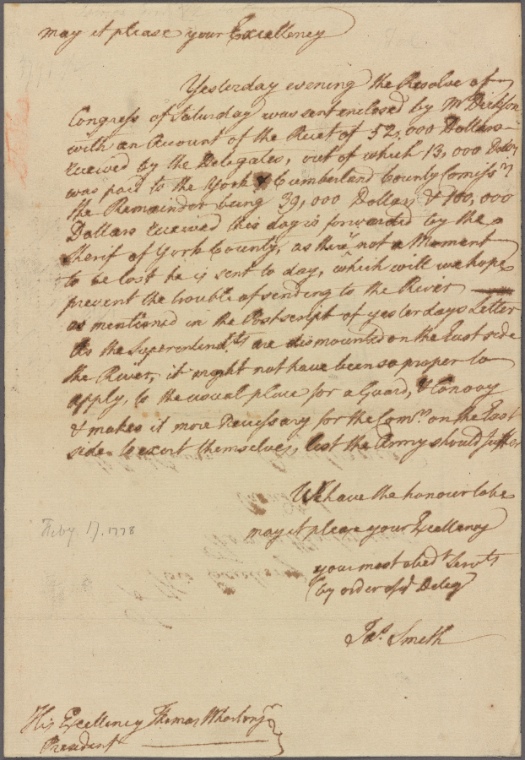 may it please your Excellency
Yesterday evening the Resolve of
Congress of Saturday was sent enclosed by Mr Dickson
with an Account of the Rciet of 52,000 Dollars
received by the Delegates, out of which 13,000 Dollrs
was paid to the York & Cumberland County Comissrs
the Remainder being 39,000 Dollars & 100,000
Dollars received this day is forwarded by the
Sherif of York County, as there's not a Moment
to be lost he is sent to day, which will we hope
prevent the trouble of sending to the River
as mentioned in the Postscript of yesterdays Letter
As the Superintendts are dismounted on the East side
the River, it might not have been so proper to
apply, to the usual place for a Guard, & Convoy
& makes it more Necessary for the Comrs on the East
side to exert themselves, lest the Army should suffer
We have the honour to be
may it please your Excellency
your most obedt Servts
(by order of ye Delegs
Jas. Smith
Feby 17, 1778
His Excellency Thomas Wharton jr
President